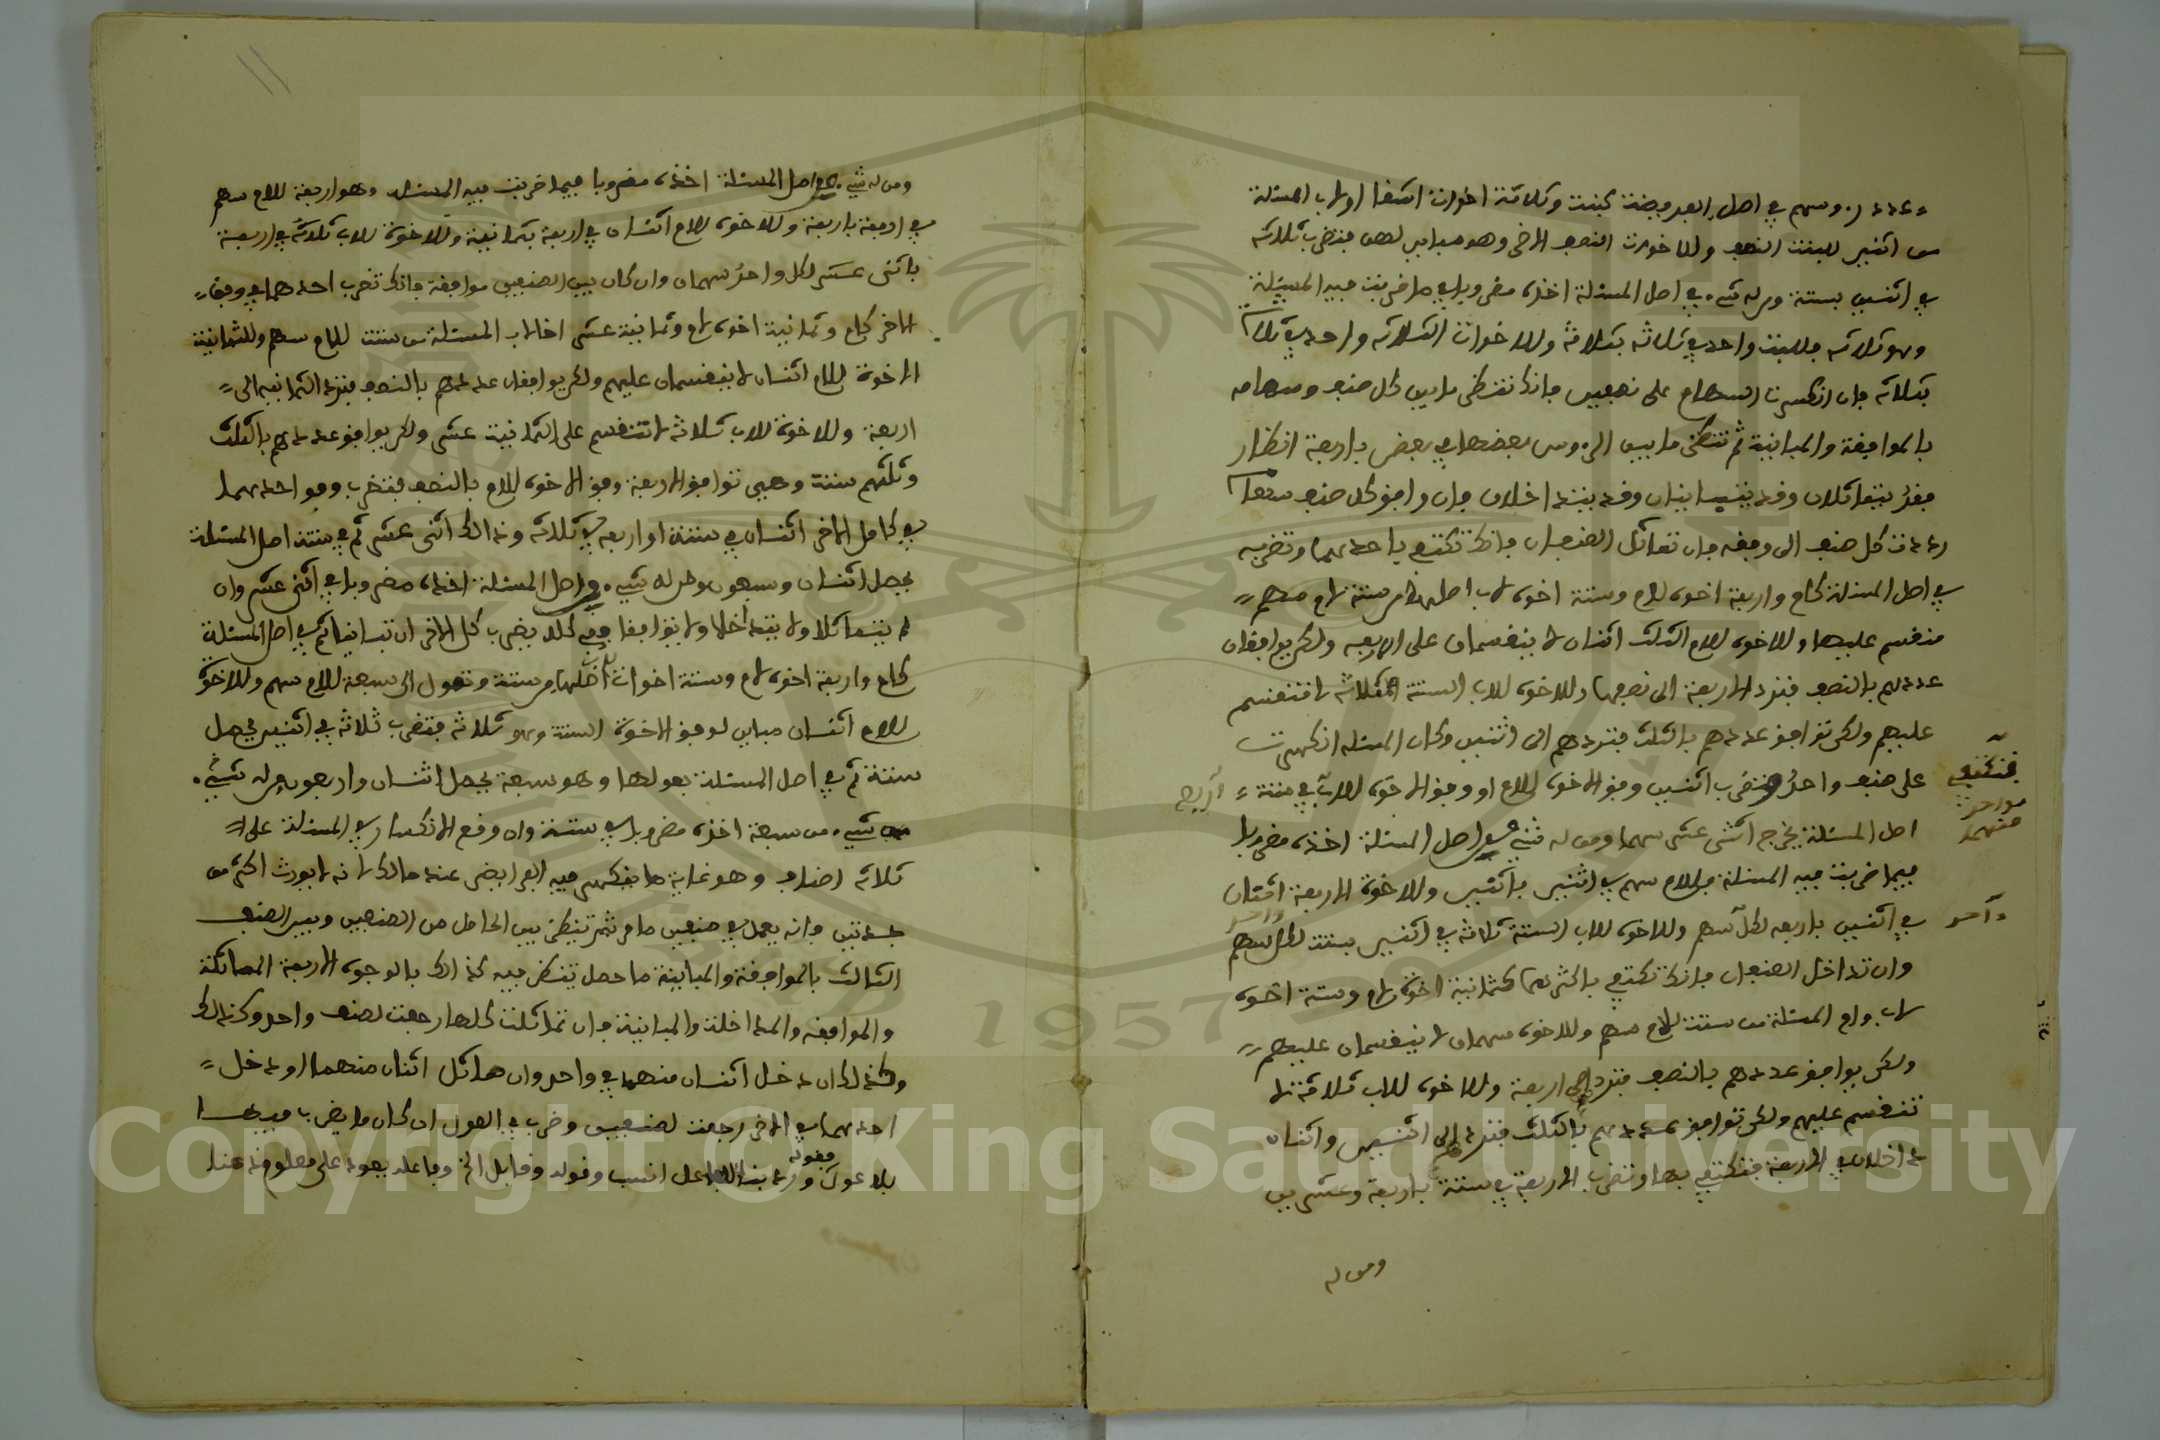 عدد روسهم في اصل الفريضة كبنت وثلاثة اخوات اشقا او لاب المسئلة
من اثنين للبنت النصف وللاخوات النصف الاخر وهو مباين لهن فتضرب ثلاثة
في اثنين بستة ومن له شيء في اصل المسئلة اخذه مضروبا في ما ضربت فيه المسئلة
وهو ثلاثة فللبنت واحد في ثلاثة بثلاثة وللاخوات الثلاثة واحد في ثلاثة
بثلاثة فان انكسرت السهام على صنفين فانك تنظر ما بين كل صنف وسهامه
بالموافقة والمباينة ثم تنظر ما بين الروس بعضها في بعض باربعة انظار
فقد يتماثلان وقد يتباينان وقد يتداخلان فان وافق كل صنف سهامه
رددت كل صنف الى وفقه فان تماثل الصنفان فانك تكتفي باحدهما وتضربه
في اصل المسئلة كام واربعة اخوة لام وستة اخوة لاب اصلها من ستة لام سهم
منقسم عليها وللاخوة للام الثلث اثنان لا ينقسمان على الاربعة ولكن يوافقان
عددهم بالنصف فترد الاربعة الى نصفها وللاخوة للاب الستة الثلاثة لا تنقسم
عليهم ولكن توافق عددهم بالثلث فتردهم الى اثنين وكان المسئلة انكسرت
على صنف واحد فتضرب اثنين وفق الاخوة للام او وفق الاخوة للاب في ستة
فتكتفي
بواحد
منهما
اصل المسئلة يخرج اثنى عشر سهما ومن له شيء في اصل المسئلة اخذه مضروبا
فيما ضربت فيه المسئلة فللام سهم في اثنين باثنين وللاخوة الاربعة اثنان
في اثنين باربعة لكل سهم وللاخوة للاب الستة ثلاثة في اثنين بستة لكل سهم
واحد
وان تداخل الصنفان فانك تكتفي باكثرهما كثمانية اخوة لام وستة اخوة
لاب وام المسئلة من ستة للام سهم وللاخوة سهمان لا ينقسمان عليهم
ولكن يوافق عددهم بالنصف فترد الى اربعة وللاخوة للاب ثلاثة لا
تنقسم عليهم ولكن توافق عددهم بالثلث فترد الى اثنين واثنان
داخلان في الاربعة فتكتفي بها وتضرب الاربعة في ستة باربعة وعشرين
ومن له
١١
ومن له شيء في اصل المسئلة اخذه مضروبا فيما ضربت فيه المسئلة وهو اربعة للام سهم
في اربعة باربعة وللاخوة للام اثنان في اربعة بثمانية وللاخوة للاب ثلاثة في اربعة
باثنى عشر لكل واحد سهمان وان كان بين الصنفين موافقة فانك تضرب احدهما في وفق
الاخر كام وثمانية اخوة لام وثمانية عشر اخا لاب المسئلة من ستة للام سهم وللثمانية
الاخوة للام اثنان لا ينقسمان عليهم ولكن يوافقان عددهم بالنصف فترد الثمانية الى
اربعة وللاخوة للاب ثلاثة لا تنقسم على الثمانية عشر ولكن يوافق عددهم بالثلث
وثلثهم ستة وهي توافق الاربعة وفق الاخوة للام بالنصف فتضرب وفق احدهما
في كامل الاخر اثنان في ستة او اربعة في ثلاثة وذالك اثنى عشر ثم في ستة اصل المسئلة
يحصل اثنان وسبعون ومن له شيء في اصل المسئلة اخذه مضروبا في اثنى عشر وان
لم يتماثلا ولا يتداخلا ولا يتوافقا فلك يضرب كل الاخر ان تباينا ثم في اصل المسئلة
كام واربعة اخوة لام وستة اخوات اصلها من ستة وتعول الى سبعة للام سهم وللاخوة
للام اثنان مباين لوفق الاخوة الستة وهو ثلاثة فتضرب ثلاثة في اثنين يحصل
ستة ثم في اصل المسئلة بعولها وهو سبعة يحصل اثنان واربعون ومن له شيء
من سبعة اخذه مضروبا في ستة وان وقع الانكسار في المسئلة على
ثلاثة اصناف وهو غاية ما ينكسر فيه الفرايض عند مالك لانه لا يورث اكثر من
جدتين فانه يعمل في صنفين ما مر ثم تنظر بين الحاصل من الصنفين وبين الصنف
الثالث بالموافقة والمباينة ما حصل تنظر فيه كذالك بالوجوه الاربعة المماثلة
والموافقة والمداخلة والمباينة فان تماثلت كلها رجعت لصنف واحد وكذالك
وكذلك ان دخل اثنان منهما في واحد وان ماثل اثنان منهما او دخل
احدهما في الاخر رجعت لصنفين وضرب في العول ان كان ما يضرب فيها
بلا عول وقوله وقابل الخ وفاعله يعود على معلوم ذهنا